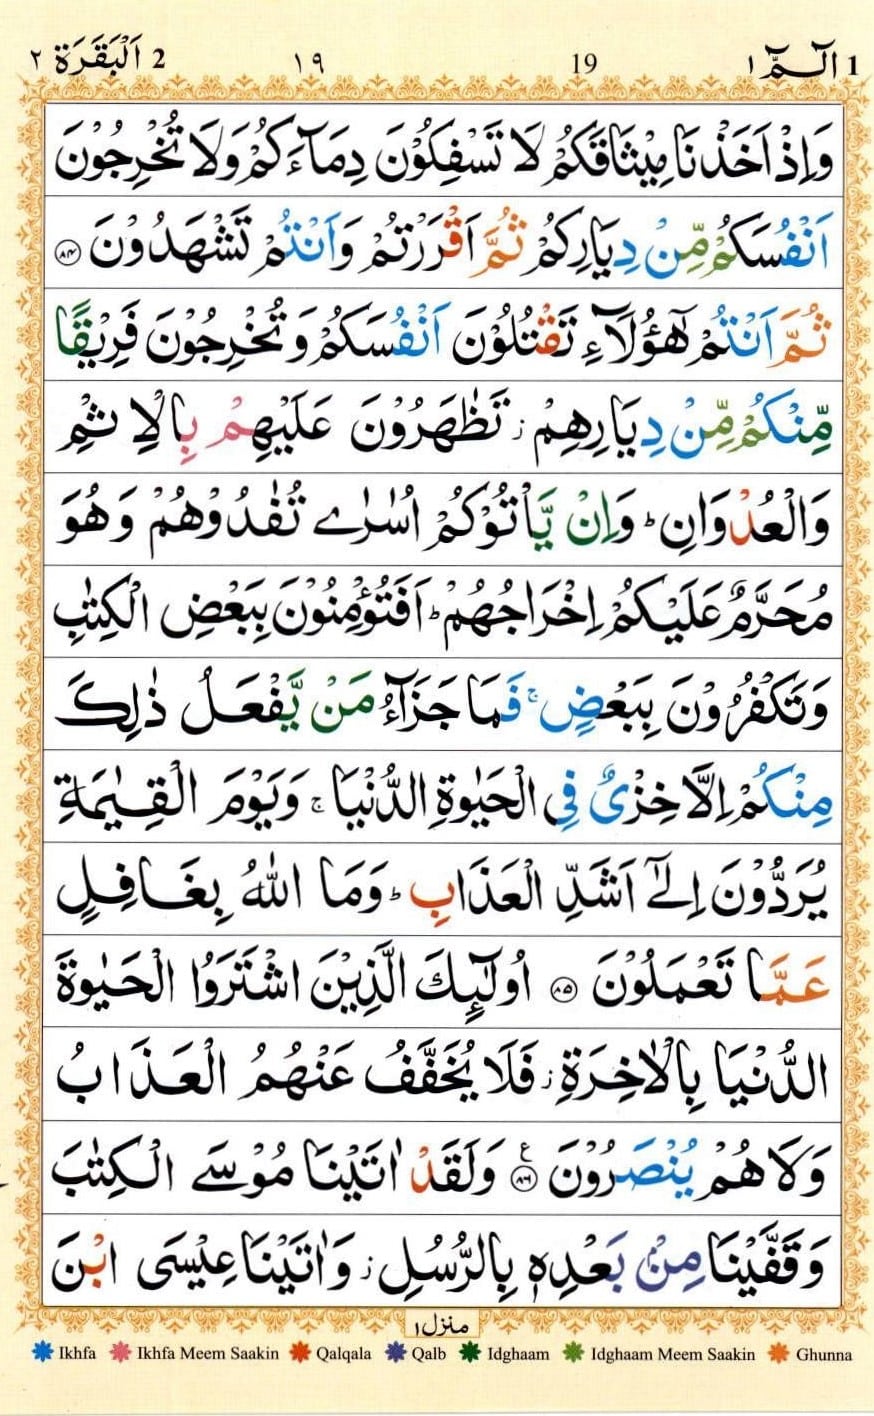 1 الٓـمّٓ ١ 19 ١٩ 2 اَلْبَقَرَة ٢
وَاِذْ اَخَذْنَا مِيْثَاقَكُمْ لَا تَسْفِكُوْنَ دِمَآءَكُمْ وَلَا تُخْرِجُوْنَ
اَنْفُسَكُمْ مِّنْ دِيَارِكُمْ ثُمَّ اَقْرَرْتُمْ وَاَنْتُمْ تَشْهَدُوْنَ ۝٨٤
ثُمَّ اَنْتُمْ هٰٓؤُلَآءِ تَقْتُلُوْنَ اَنْفُسَكُمْ وَتُخْرِجُوْنَ فَرِيْقًا
مِّنْكُمْ مِّنْ دِيَارِهِمْ ؗ تَظٰهَرُوْنَ عَلَيْهِمْ بِالْاِثْمِ
وَالْعُدْوَانِ ؕ وَاِنْ يَّاْتُوْكُمْ اُسٰرٰى تُفٰدُوْهُمْ وَهُوَ
مُحَرَّمٌ عَلَيْكُمْ اِخْرَاجُهُمْ ؕ اَفَتُؤْمِنُوْنَ بِبَعْضِ الْكِتٰبِ
وَتَكْفُرُوْنَ بِبَعْضٍ ۚ فَمَا جَزَآءُ مَنْ يَّفْعَلُ ذٰلِكَ
مِنْكُمْ اِلَّا خِزْىٌ فِى الْحَيٰوةِ الدُّنْيَا ۚ وَيَوْمَ الْقِيٰمَةِ
يُرَدُّوْنَ اِلٰٓى اَشَدِّ الْعَذَابِ ؕ وَمَا اللّٰهُ بِغَافِلٍ
عَمَّا تَعْمَلُوْنَ ۝٨٥ اُولٰٓئِكَ الَّذِيْنَ اشْتَرَوُا الْحَيٰوةَ
الدُّنْيَا بِالْاٰخِرَةِ ؗ فَلَا يُخَفَّفُ عَنْهُمُ الْعَذَابُ
وَلَا هُمْ يُنْصَرُوْنَ ۝٨٦ ع وَلَقَدْ اٰتَيْنَا مُوْسَى الْكِتٰبَ
وَقَفَّيْنَا مِنْۢ بَعْدِهٖ بِالرُّسُلِ ؗ وَاٰتَيْنَا عِيْسَى ابْنَ
منزل ١
Ikhfa Ikhfa Meem Saakin Qalqala Qalb Idghaam Idghaam Meem Saakin Ghunna